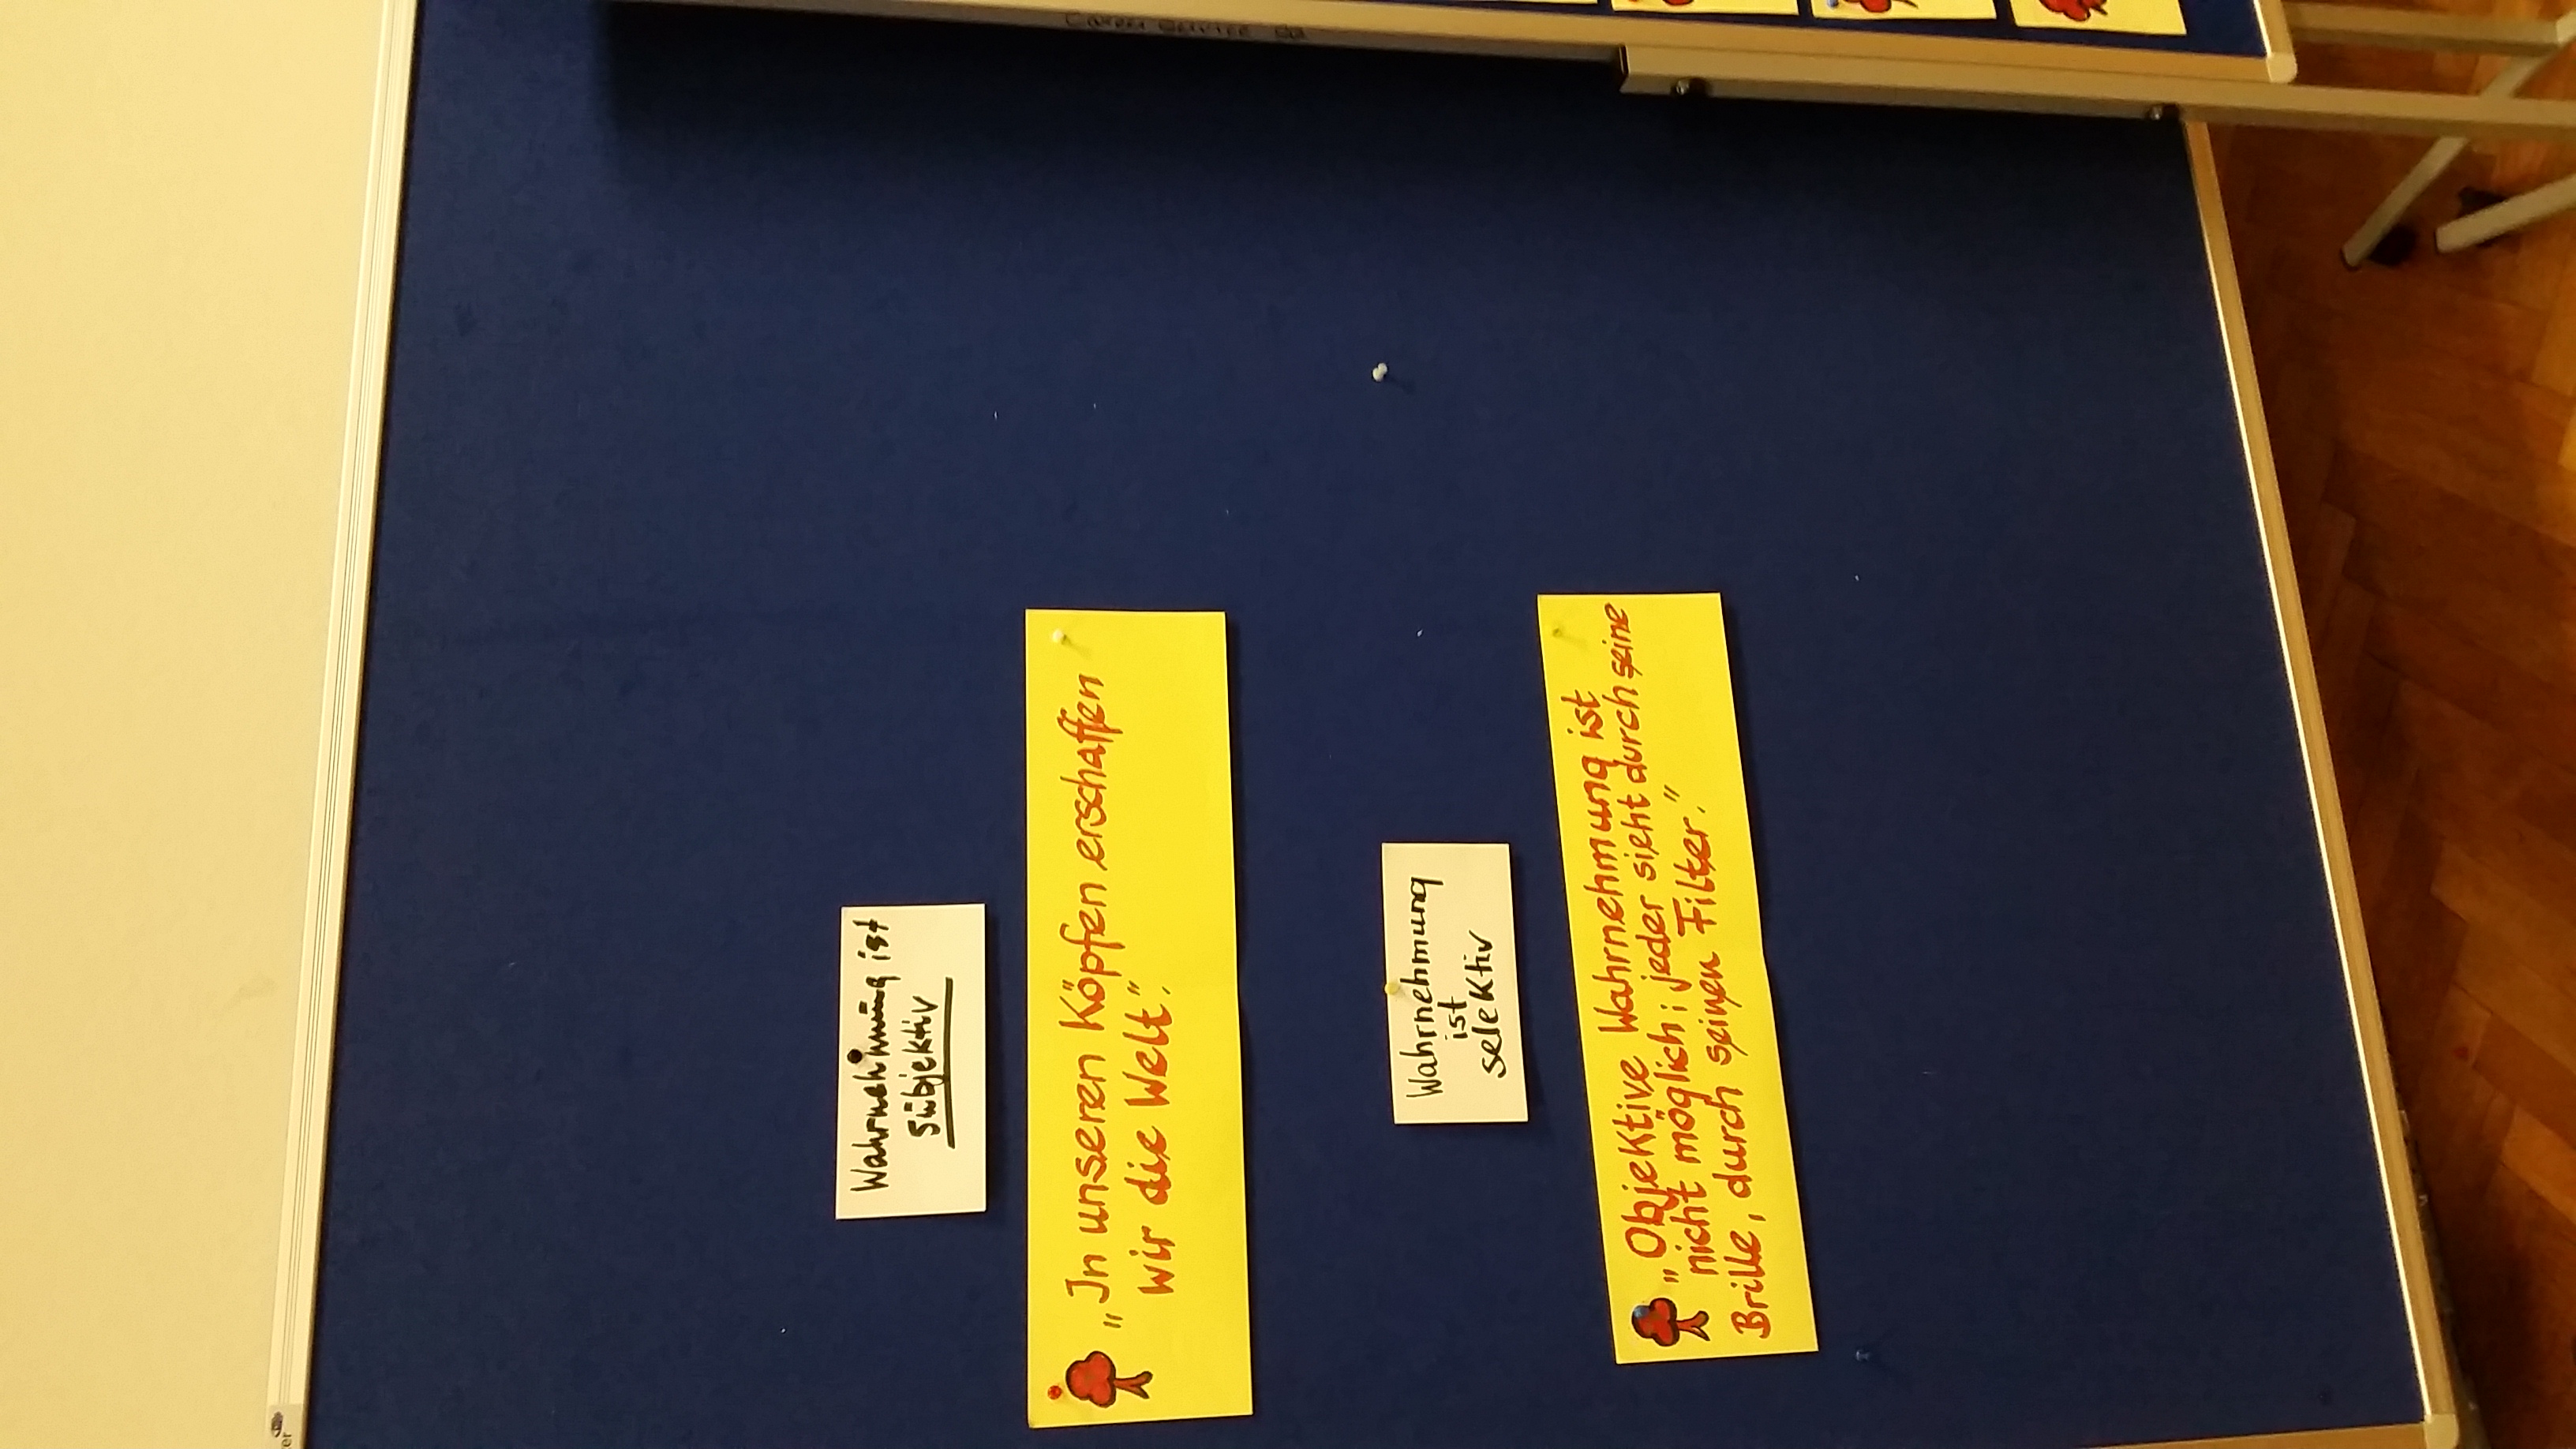 Wahrnehmung ist
subjektiv
„In unseren Köpfen erschaffen
wir die Welt".
Wahrnehmung
ist
selektiv
„Objektive Wahrnehmung ist
nicht möglich; jeder sieht durch seine
Brille, durch seinen Filter."